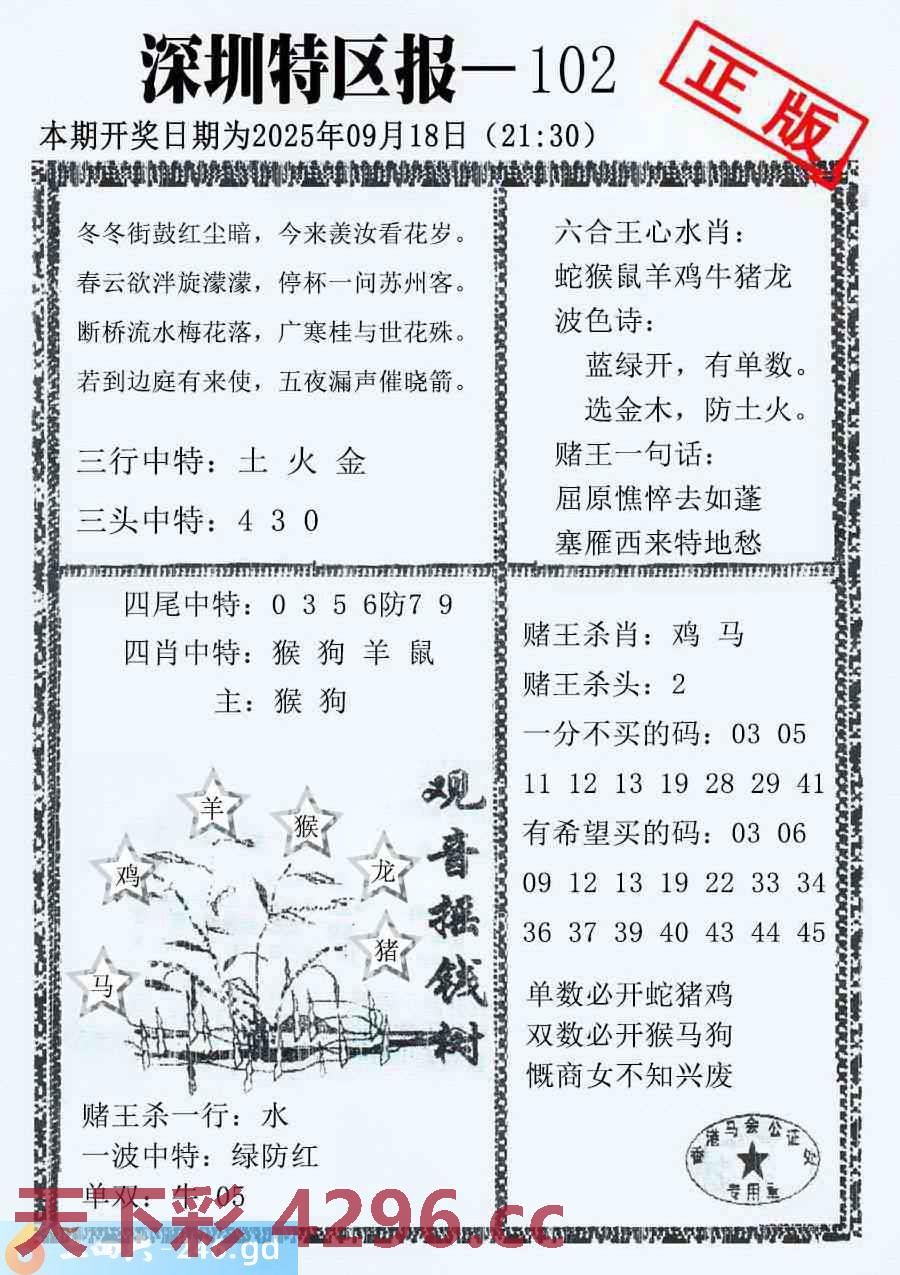 深圳特区报—102
正版
本期开奖日期为2025年09月18日（21:30）
冬冬街鼓红尘暗，今来羡汝看花岁。
春云欲泮旋濛濛，停杯一问苏州客。
断桥流水梅花落，广寒桂与世花殊。
若到边庭有来使，五夜漏声催晓箭。
三行中特：土 火 金
三头中特：4 3 0
六合王心水肖：
蛇猴鼠羊鸡牛猪龙
波色诗：
蓝绿开，有单数。
选金木，防土火。
赌王一句话：
屈原憔悴去如蓬
塞雁西来特地愁
四尾中特：0 3 5 6防7 9
四肖中特：猴 狗 羊 鼠
主：猴 狗
观音摇钱树
羊
猴
鸡
龙
猪
马
赌王杀一行：水
一波中特：绿防红
单双：牛 05
赌王杀肖：鸡 马
赌王杀头：2
一分不买的码：03 05
11 12 13 19 28 29 41
有希望买的码：03 06
09 12 13 19 22 33 34
36 37 39 40 43 44 45
单数必开蛇猪鸡
双数必开猴马狗
慨商女不知兴废
香港马会公证处
专用章
天下彩 4296.cc
-246.gd